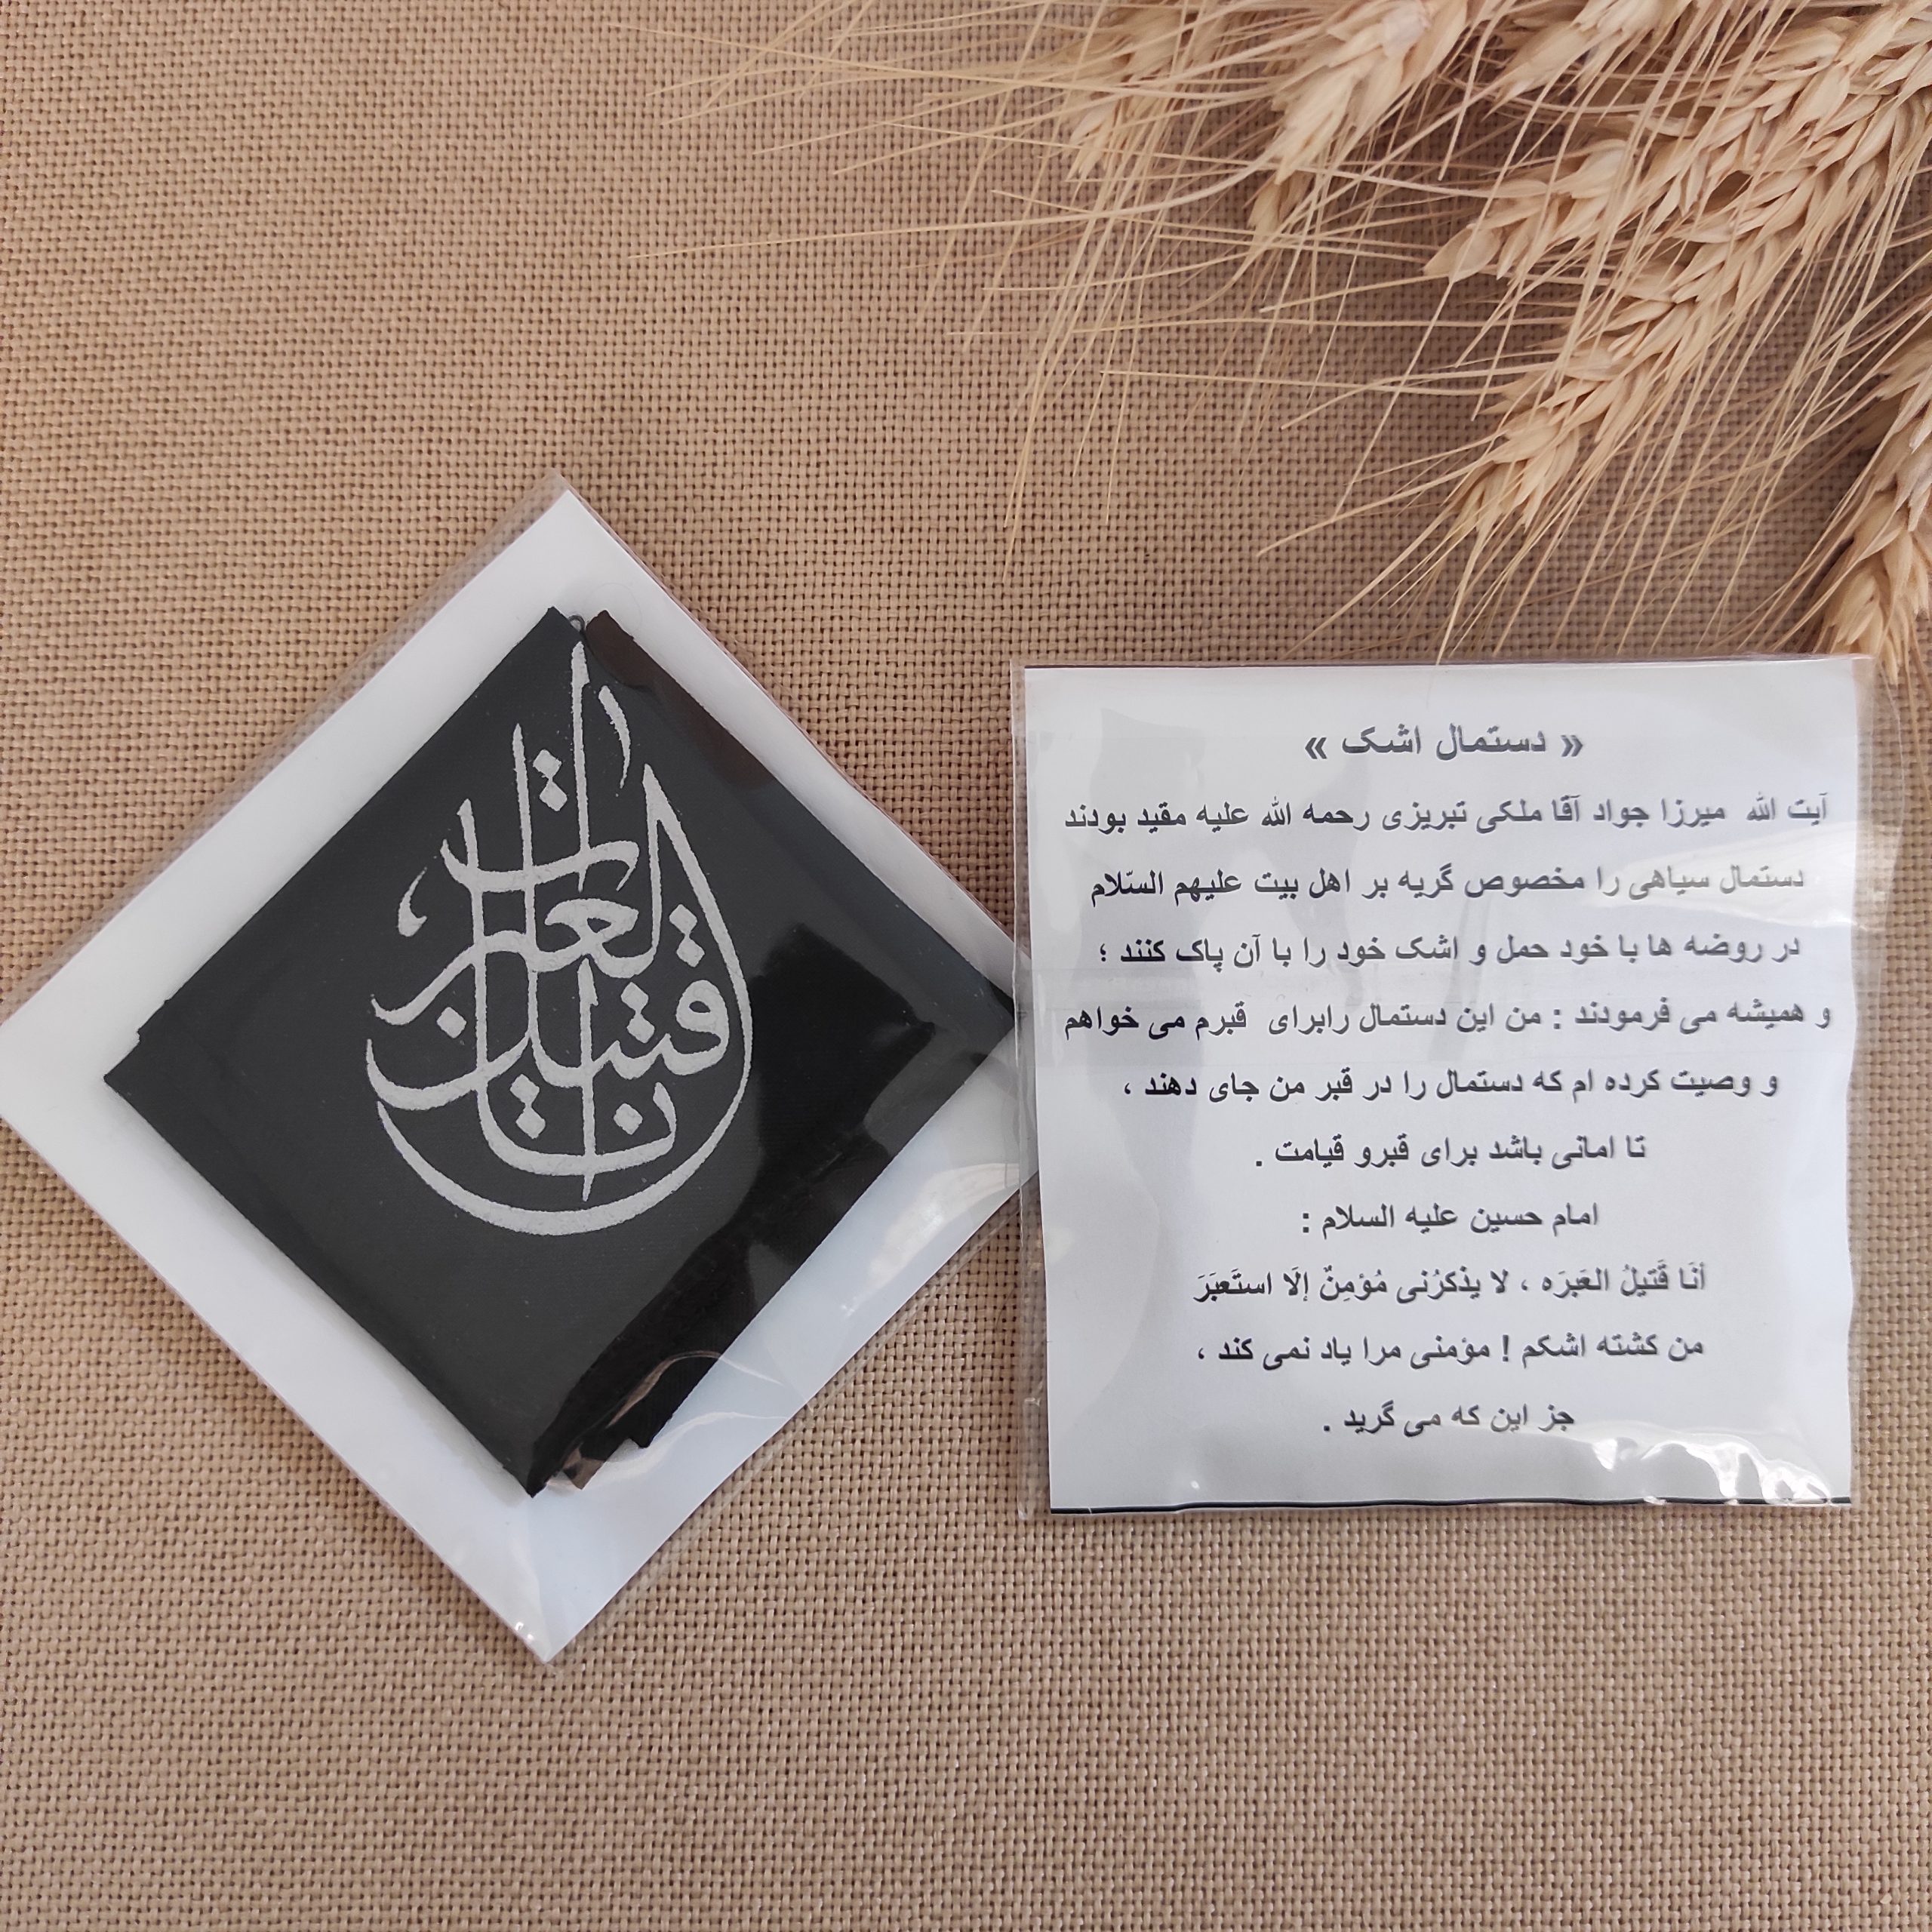 انا قتیل العبرات
« دستمال اشک »
آیت الله میرزا جواد آقا ملکی تبریزی رحمه الله علیه مقید بودند
دستمال سیاهی را مخصوص گریه بر اهل بیت علیهم السّلام
در روضه ها با خود حمل و اشک خود را با آن پاک کنند ؛
و همیشه می فرمودند : من این دستمال رابرای قبرم می خواهم
و وصیت کرده ام که دستمال را در قبر من جای دهند ،
تا امانی باشد برای قبرو قیامت .
امام حسین علیه السلام :
أنَا قَتیلُ العَبرَه ، لا یذکرُنی مُؤمِنٌ إلَا استَعبَرَ
من کشته اشکم ! مؤمنی مرا یاد نمی کند ،
جز این که می گرید .